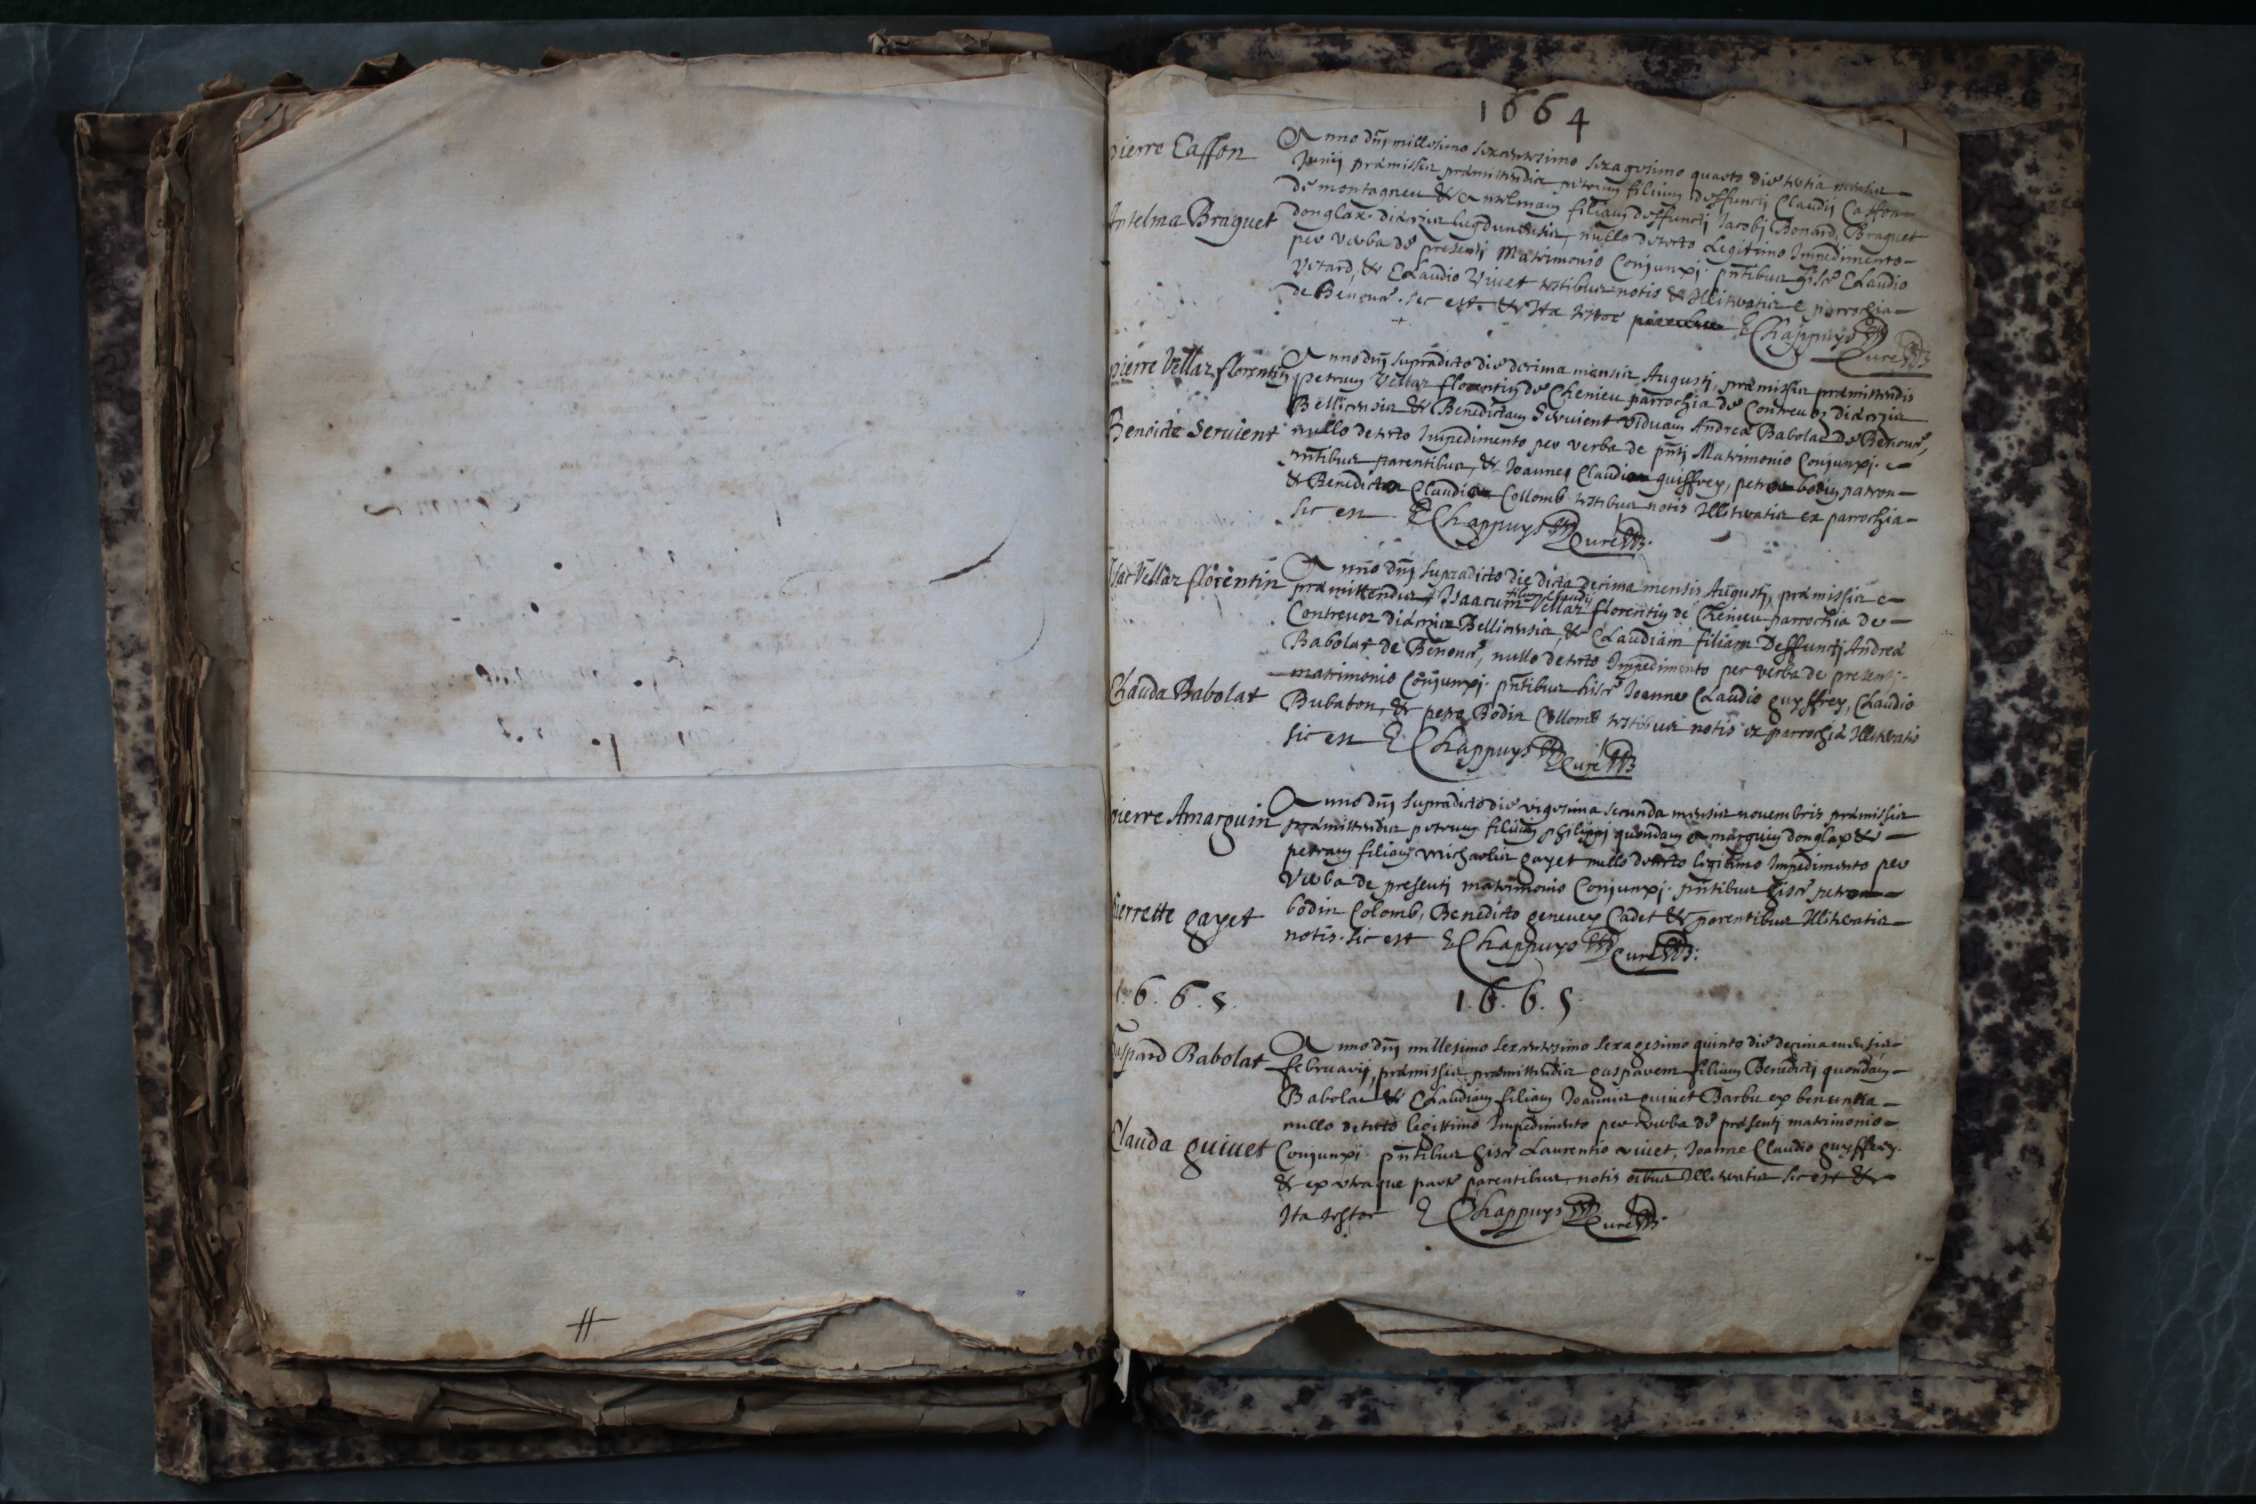 1664
pierre Caffon
Anno dnj millesimo sexcentesimo sexagesimo quarto die tertia mensis
Junij præmissis præmittendis petrum filium deffuncti Claudij Caffon
de montagneu & Antelmam filiam deffuncti Jacobi Bonard Braquet
Antelma Braquet
donglax diæcesis lugdunensis, nullo detecto Legitimo Impedimento
per verba de presenti Matrimonio Conjunxi. pntibus hisce Claudio
Vitard, & Claudio Vivet testibus notis & Illiteratis e parrochia
de Benonce. sic est. & Ita testor E Chappuys Curé
pierre Vellaz florentin
Anno dnj supradicto die decima mensis Augustj, præmissis præmittendis
petrum Vellaz florentin de Chenieu parrochia de Contrevoz diæcesis
Bellicensis & Benedictam Servient viduam Andreæ Babolat de Benonce,
Benoicte Servient
nullo detecto Impedimento per verba de pntj Matrimonio Conjunxi.
pntibus parentibus, & Joanne Claudio guiffrey, petro bodin patron
& Benedicto Claudio Collomb testibus notis Illiteratis ex parrochia
sic est E Chappuys Curé
Isac Vellaz florentin
Anno dnj supradicto die dicta decima mensis Augustj, præmissis
filium Claudij
præmittendis, Isaacum Vellaz florentin de Chenieu parrochia de
Contrevoz diæcesis Bellicensis, & Claudiam filiam Deffuncti Andreæ
Babolat de Benonce, nullo detecto Impedimento per verba de presentj
Clauda Babolat
matrimonio Conjunxi. pntibus hisce Joanne Claudio guyffrey, Claudio
Bubaton, & petro Bodin Collomb testibus notis ex parrochia Illiteratis
sic est E Chappuys Curé
pierre Amarguin
Anno dnj supradicto die vigesima secunda mensis novembris præmissis
præmittendis petrum filium philippi quondam Amarguin donglax &
petram filiam Michaelis gayet nullo detecto legitimo Impedimento per
Verba de presenti matrimonio Conjunxi. pntibus hisce petro
pierrette gayet
bodin Colomb, Benedicto genevey Cadet & parentibus Illiteratis
notis. sic est E Chappuys Curé
1.6.6.5.
1.6.6.5
Gaspard Babolat
Anno dnj millesimo sexcentesimo sexagesimo quinto die decima mensis
februarij, præmissis præmittendis gasparem filium Benedictj quondam
Babolat & Claudiam filiam Joannis guivet Barbu ex benuncia
nullo detecto legittimo Impedimento per verba de præsentj matrimonio
Clauda guivet
Conjunxi. pntibus hisce Laurentio vivet, Joanne Claudio guyffrey.
& ex utraque parte parentibus, notis oibus Illiteratis sic est &
Ita testor E Chappuys Curé